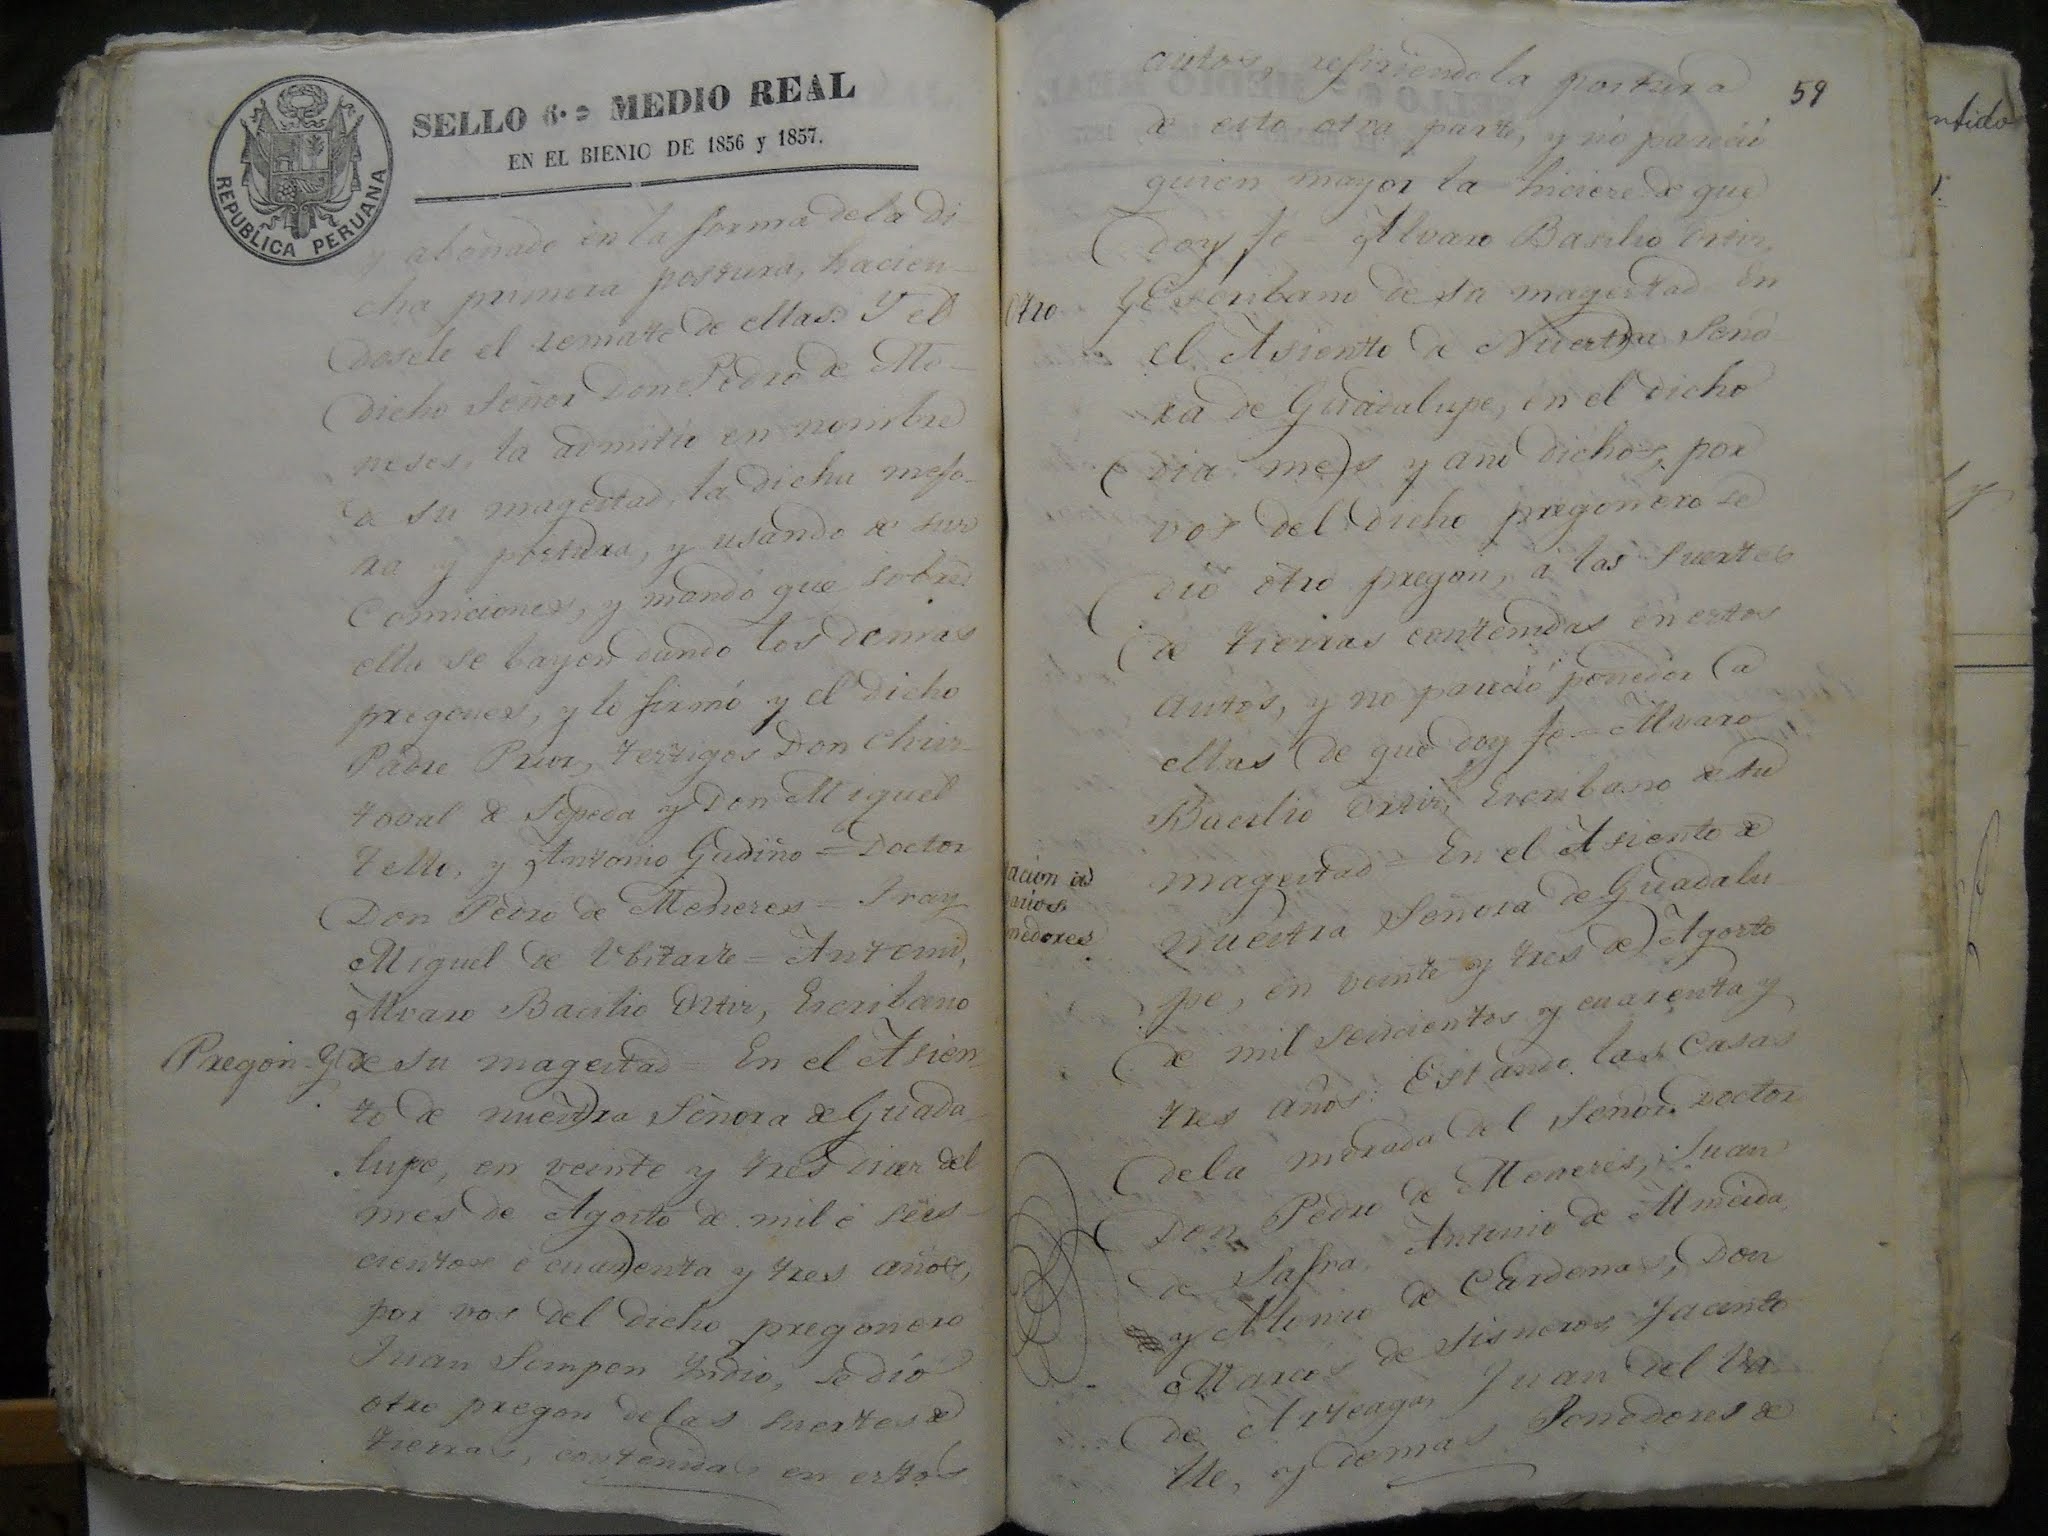 SELLO 6.º MEDIO REAL
EN EL BIENIO DE 1856 y 1857.
REPUBLICA PERUANA
y abonado en la forma dela di
cha primera postura, hacien-
dosele el remate de ellas. Y el
dicho Señor Don Pedro de Me-
neses, la admitio en nombre
de su magestad, la dicha mejo-
ra y postura, y usando de sus
Comiciones, y mandó que sobre
ella se bayen dando los demas
pregones, y lo firmó y el dicho
Padre Prior, testigos Don Chris-
toval de Sepeda y Don Miguel
Tello, y Antonio Gudiño = Doctor
Don Pedro de Meneses = Fray
Miguel de Ubitarte = Antemi,
Alvaro Bacilio Ortis, Escribano
Pregon Y de su magestad = En el Asien-
to de nuestra Señora de Guada-
lupe, en veinte y tres dias del
mes de Agosto de mil é seis-
cientos é cuarenta y tres años,
por vos del dicho pregonero
Juan Simpen Yndio, se dió
otro pregon delas suertes de
tierras, contenidas en estos
59
autos, refiriendola postura
de esta otra parte, y nó pareció
quien mayor la hiciere de que
doy fe = Alvaro Basilio Ortis,
Otro Escribano de su magestad En
el Asiento de Nuestra Seño
ra de Guadalupe, en el dicho
dia mes y año dichos, por
vos del dicho pregonero se
dió otro pregon, á las suertes
de tierras contenidas en estos
autos, y no pareció ponedor a
ellas de que doy fe = Alvaro
Bacilio Ortis, Escribano de su
magestad = En el Asiento de
nuestra Señora de Guadalu-
acion de
arios
nedores
pe, en veinte y tres de Agosto
de mil seiscientos y cuarenta y
tres años: Estando las Casas
dela morada del Señor Doctor
Don Pedro de Meneses, Juan
de Safra Antonio de Almeida,
y Alonso de Cardenas, Don
Marcos de Sisneros Jacinto
de Arteaga, Juan del Va
lle, y demas Ponedores de
ntido
y